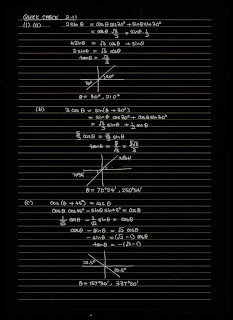 QUICK CHECK 2.11
(1) (a) 2sin θ = cos θ cos30° + sinθ sin30°
= cosθ √3/2 + sinθ · 1/2
4sinθ = √3 cosθ + sinθ
3 sinθ = √3 cosθ
tanθ = √3/3
30° 30°
θ = 30°, 210°
(b) 3 cosθ = sin(θ + 30°)
= sinθ cos30° + cosθ sin30°
= √3/2 sinθ + 1/2 cosθ
5/2 cosθ = √3/2 sinθ
tanθ = 5/√3 = 5√3/3
70°54' 70°54'
θ = 70°54', 250°54'
(c) cos (θ + 45°) = cosθ
cosθ cos45° - sinθ sin45° = cosθ
1/√2 cosθ - 1/√2 sinθ = cosθ
cosθ - sinθ = √2 cosθ
- sinθ = (√2 - 1) cosθ
tanθ = -(√2-1)
22.5° 22.5°
θ = 157°30', 337°30'